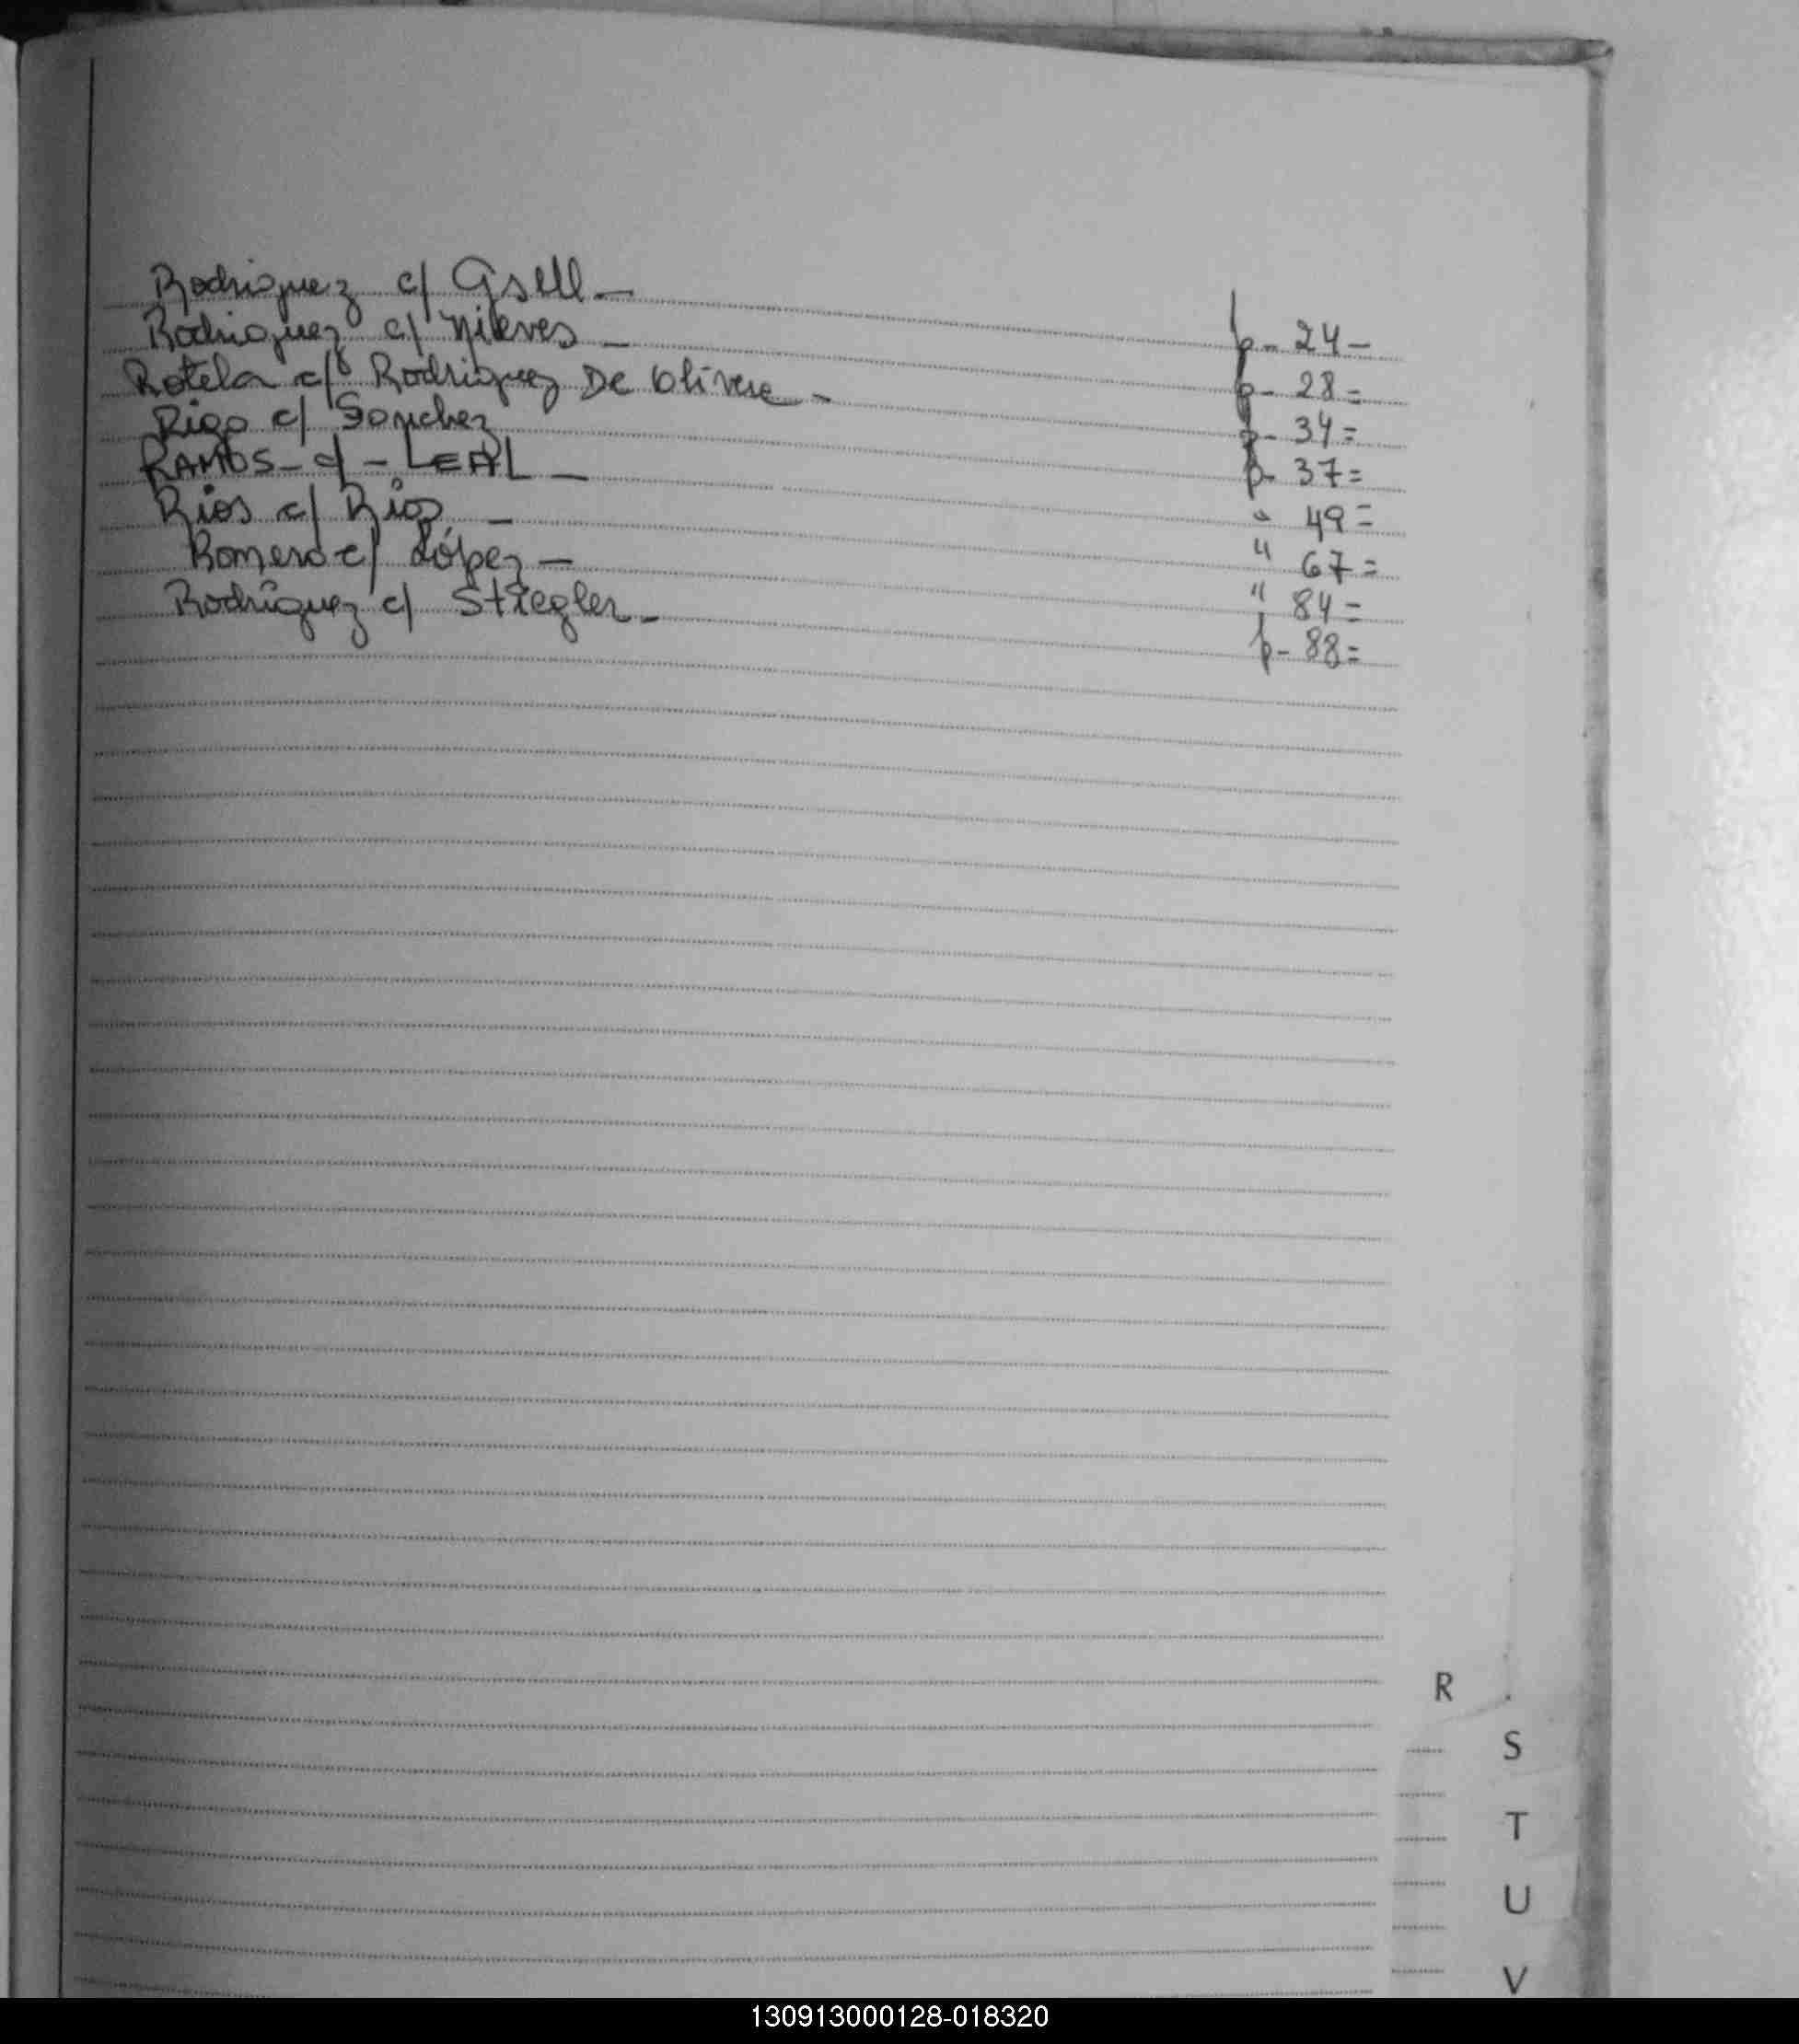 Rodriguez c/ Gsell - p- 24-
Rodriguez c/ Nieves - p- 28=
Rotela c/ Rodriguez De Olivera - p- 34=
Rigo c/ Sanchez p- 37=
RAMOS - c/ - LEAL - " 49=
Rios c/ Rios - " 67=
Romero c/ López - " 84=
Rodríguez c/ Stiegler - p- 88=
R
S
T
U
V
130913000128-018320